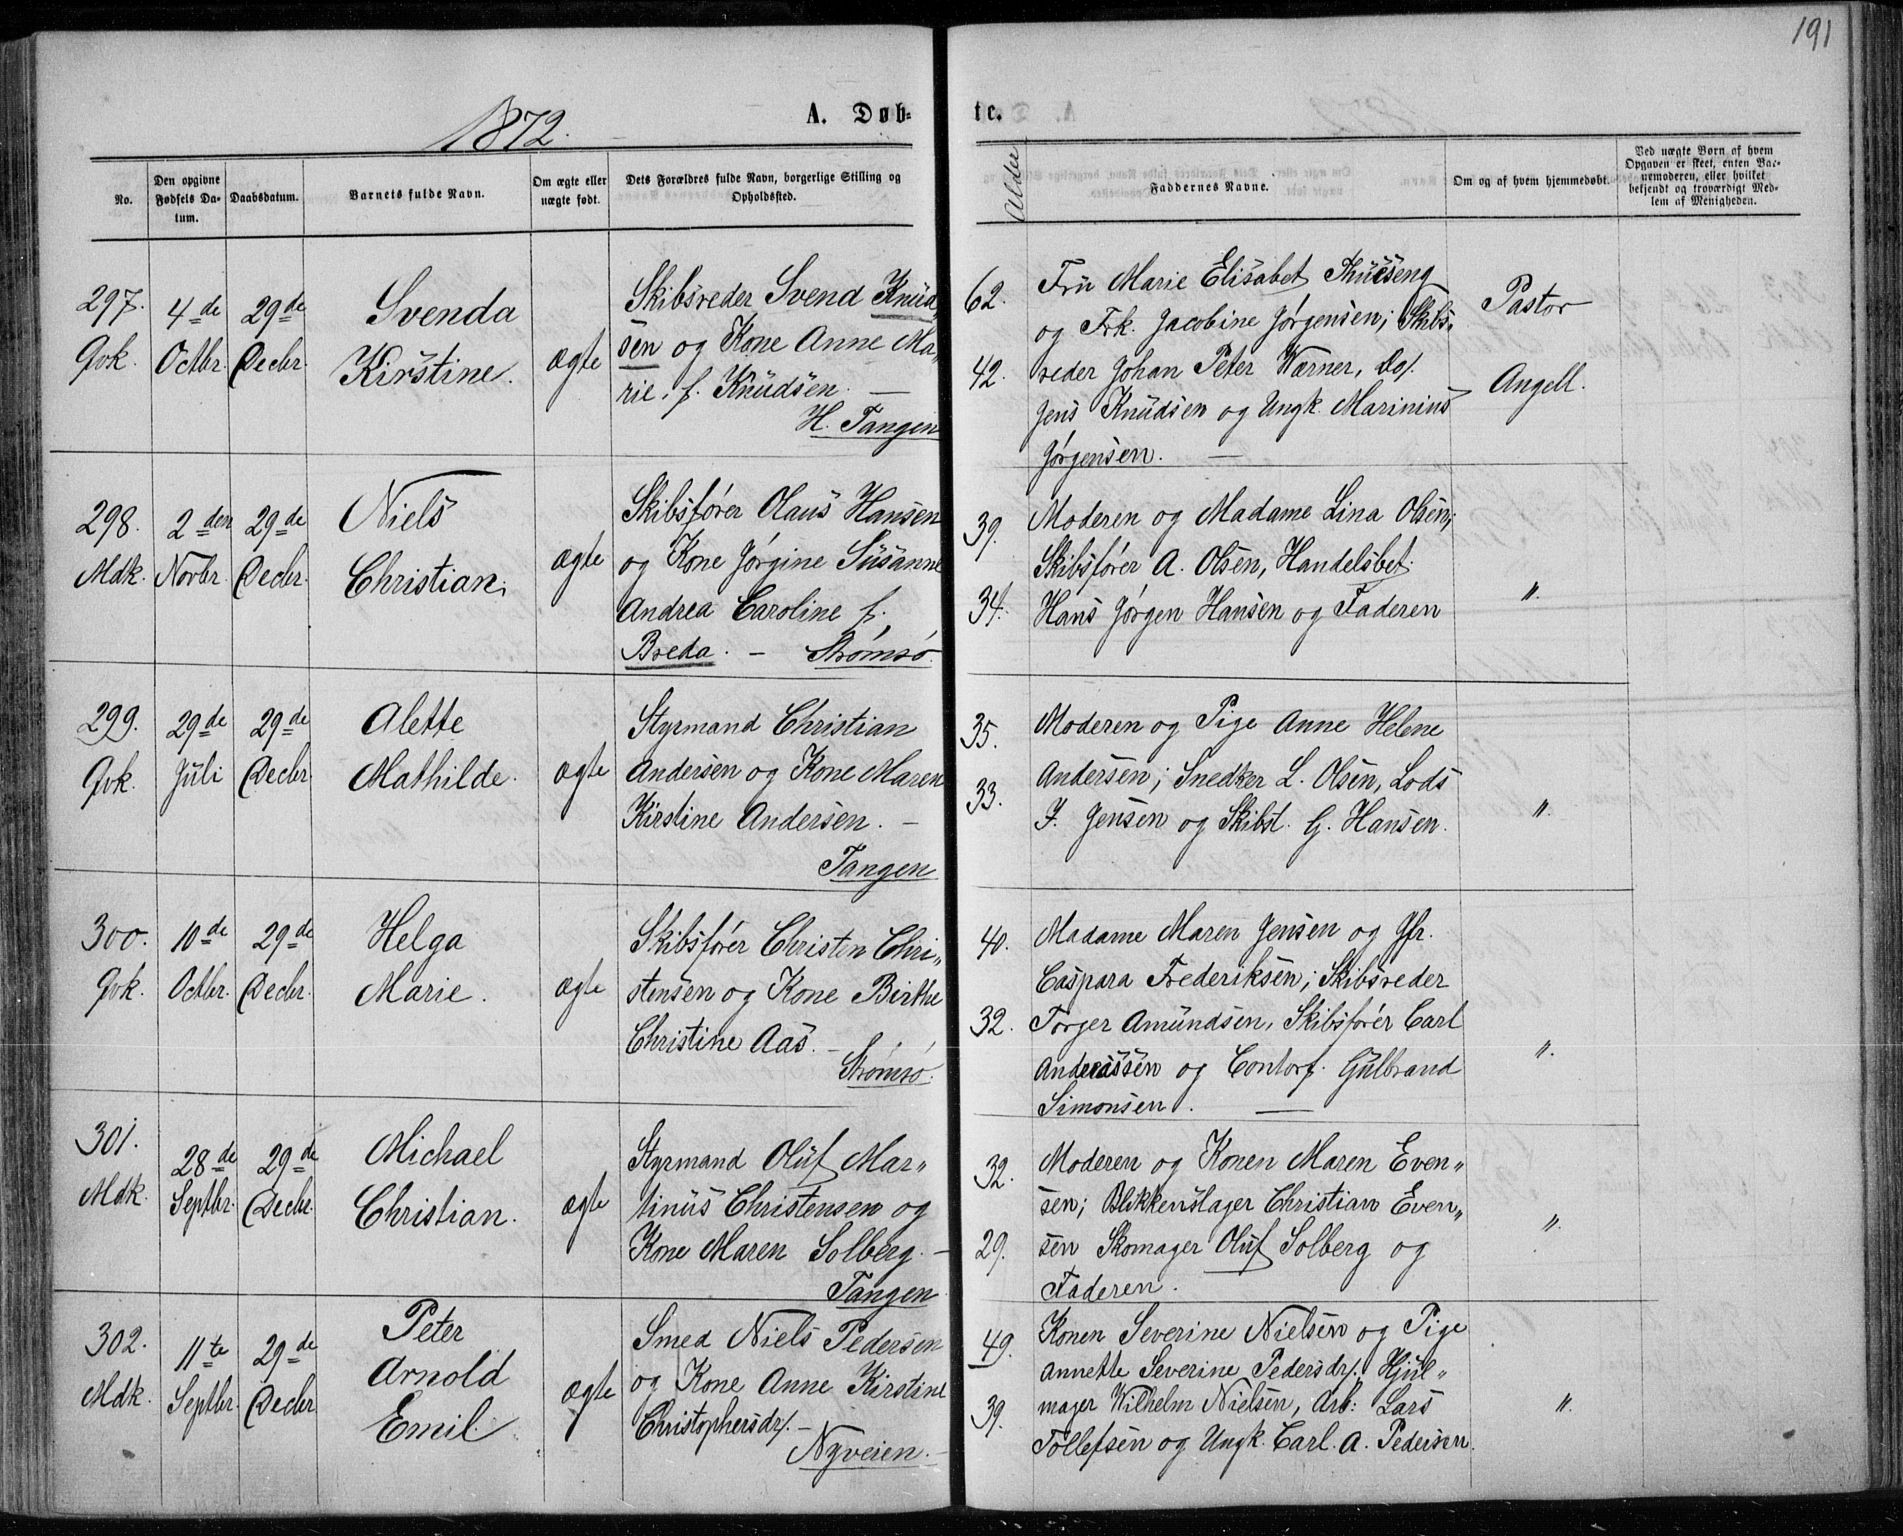 191
1872.
A. Døb-
te.
No.
Den opgivne Fødsels Da-
tum.
Daabsdatum.
Barnets fulde Navn.
Om ægte eller
uægte født.
Dets Forældres fulde Navn, borgerlige Stilling og
Opholdssted.
Alder
Faddernes Navne.
Om og af hvem hjemmedøbt.
Ved uægte Børn af hvem
Opgaven er skeet, enten Bar-
nemoderen, eller hvilket
bekjendt og troværdigt Med-
lem af Menigheden.
297.
Qvk.
4de
Octbr.
29de
Decbr.
Svenda
Kirstine.
ægte
Skibsreder Svend Knüd-
sen og Kone Anne Ma-
rie, f. Knüdsen. —
H. Tangen
62.
42.
Frü Marie Elisabet
og Frk. Jacobine Jørgensen; Skibs-
reder Johan Peter Wærner, do/.
Jens Knüdsen og Ungk. Marinius
Jørgensen. —
Pastor
Angell.
298.
Mdk.
2den
Novbr.
29de
Decbr.
Niels
Christian,
ægte
Skibsfører Olaus Hansen
og Kone Jørgine Süsanne
Andrea Caroline f.
Breda. — Strømsø.
39.
34.
Moderen og Madame Lina Olsen;
Skibsfører A. Olsen, Handelsbet.
Hans Jørgen Hansen og Faderen
".
299.
Qvk.
29de
Jüli
29de
Decbr.
Alette
Mathilde.
ægte
Styrmand Christian
Andersen og Kone Maren
Kirstine Andersen. —
Tangen
35.
33.
Moderen og Pige Anne Helene
Andersen; Snedker L. Olsen, Lods
J. Jensen og Skibst. G. Hansen.
".
300.
Qvk.
10de
Octbr.
29de
Decbr.
Helga
Marie.
ægte
Skibsfører Christen Chri-
stensen og Kone Birthe
Christine Aas. —
Strømsø.
40.
32.
Madame Maren Jensen og Jfr.
Caspara Frederiksen; Skibsreder
Torger Amündsen, Skibsfører Carl
Andreassen og Contorf. Gülbrand
Simonsen. —
".
301.
Mdk.
28de
Septbr.
29de
Decbr.
Michael
Christian.
ægte
Styrmand Olüf Mar-
tinüs Christensen og
Kone Maren Solberg. —
Tangen
32.
29.
Moderen og Konen Maren Even-
sen; Blikkenslager Christian Even-
sen Skomager Olüf Solberg og
Faderen.
".
302.
Mdk.
11te
Septbr.
29de
Decbr
Peter
Arnold
Emil.
ægte
Smed Niels Pedersen
og Kone Anne Kirstine
Christophersdr/. —
Nyveien. —
49.
39.
Konen Severine Nielsen og Pige
Annette Severine Pedersdr/. Hjül-
mager Wilhelm Nielsen, Arb: Lars
Tollefsen og Ungk. Carl. A. Pedersen.
".